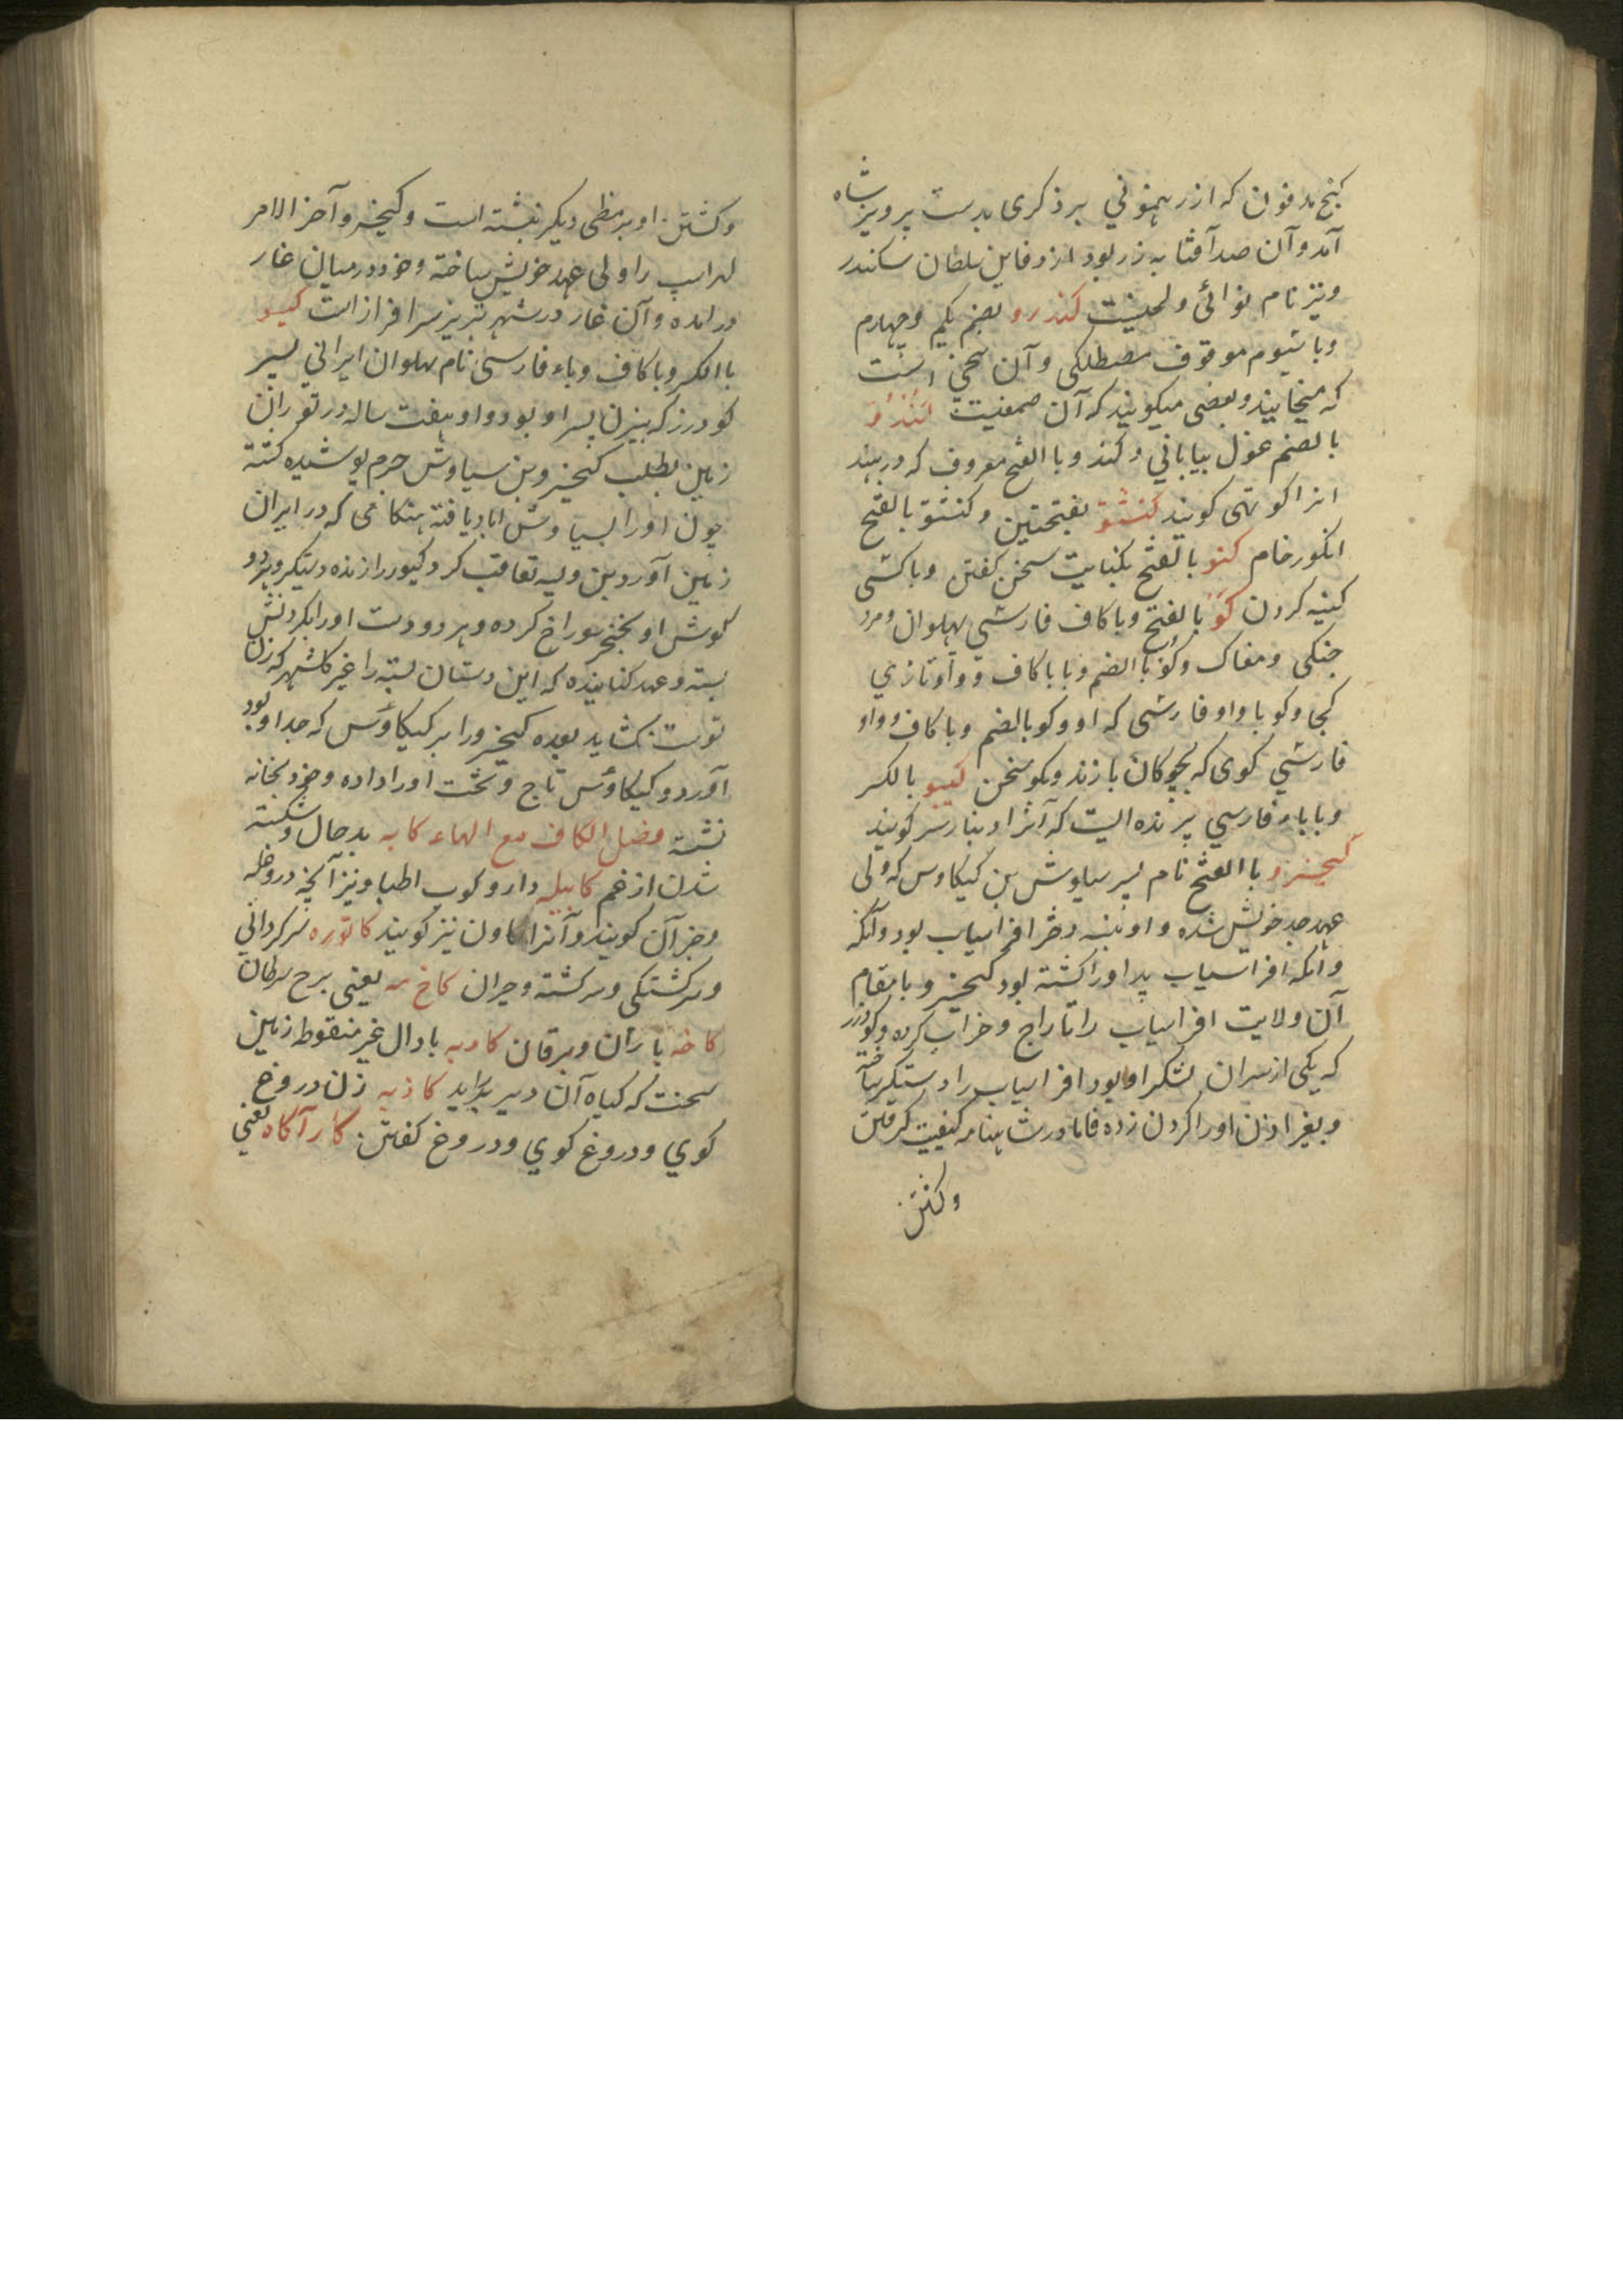 کنج مدفون که از رهنموني برذکری بدست پرویز شاه
آمد و آن صد آفتابه زر بود از دفاین سلطان سکندر
ونیز نام نوائی ولحنیست کندرو بضم یکم وچهارم
وباسیوم موقوف مصطلکی وآن سخنی است
که میخایند وبعضی میکویند که آن صمغیست کندرو
بالضم غول بیابانی وکندو باالفتح معروف که در هند
انرا کوتهی کویند کنشتو بفتحتین وکنشتو بالفتح
انکور خام کنو بالفتح بکنایت سخن کفتن وباکسی
کینه کردن کو بالفتح وباکاف فارسي پهلوان ومرد
جنکی ومغاک وکو باالضم وبا باکاف وواو تازي
کجا وکو باواو فارسي که او وکو بالضم وباکاف وواو
فارسي کوی که بچوکان بازند وبکو سخن کیبو بالکسر
وباباء فارسي پرنده ایست که آنرا دینار سر کویند
کیخسرو باالفتح نام پسر سیاوش بن کیکاوس که ولی
عهد جد خویش شده واو نبسه دختر افراسیاب بود وآنکه
وآنکه افراسیاب پدر اورا کشته بود کیخسرو بامقام
آن ولایت افراسیاب را تاراج وخراب کرده وکودرز
که یکی از سران لشکر او بود افراسیاب را دستکیر ساخته
وبغیر اذن اورا کردن زده فاما در شاهنامه کیفیت کرفتن
وکشتن
وکشتن او بنمطی دیکر نبشته است وکیخسرو آخر الامر
لهراسپ را ولی عهد خویش ساخته وخود درمیان غار
در امده وآن غار در شهر تبریز سرافراز است کیو
باالکسر وباکاف وباء فارسی نام پهلوان ایراني پسر
کودرز که بیژن پسر او بود واو هفت ساله در توران
زمین بطلب کیخسرو بن سیاوش چرم پوشیده کشته
چون اورا بسیاوش اباد یافته هنکامی که در ایران
زمین آورد پیران ویسه تعاقب کرد کیو را زنده دستکیر وهردو
کوش او بخنجر سوراخ کرده وهر دو دست اورا بکردنش
بسته وعهد کنانیده که این دستان بسته را غیر کلشهر که زن
تو ست نکشاید بعده کیخسرو را بر کیکاوس که جد او بود
آورد وکیکاوس تاج وتخت اورا داده وخود بخانه
نشسته فصل الکاف مع الهاء کابه بدحال وشکسته
شدن از غم کابیله دارو کوب اطبا ونیز آنکچه درو غله
وجز آن کویند وآنرا هاون نیز کویند کاتوره سرکرداني
وسرکشتکی وسرکشته وحیران کاخ مه یعنی برج سرطان
کاخه باران ویرقان کادیه بادال غیر منقوط زمین
سخت که کیاه آن دیر براید کاذبه زن دروغ
کوي ودروغ کوي ودروغ کفتن کارآکاه یعني